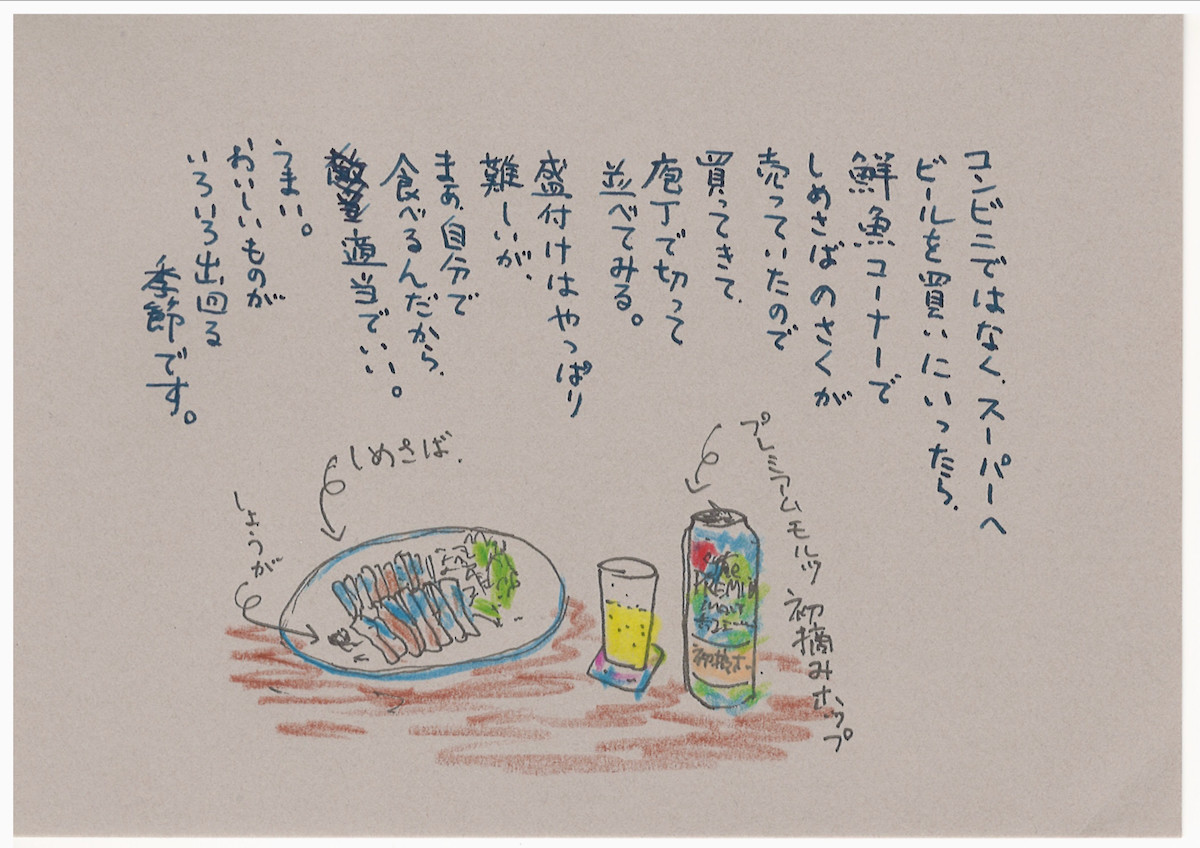 コンビニではなく、スーパーへ
ビールを買いにいったら、
鮮魚コーナーで
しめさばのさくが
売っていたので
買ってきて、
庖丁で切って
並べてみる。
盛付けはやっぱり
難しいが、
まぁ、自分で
食べるんだから、
適当でいい。
うまい。
おいしいものが
いろいろ出回る
季節です。
プレミアムモルツ 初摘みホップ
しめさば.
しょうが
the
PREMIUM
MALT
初摘ホ